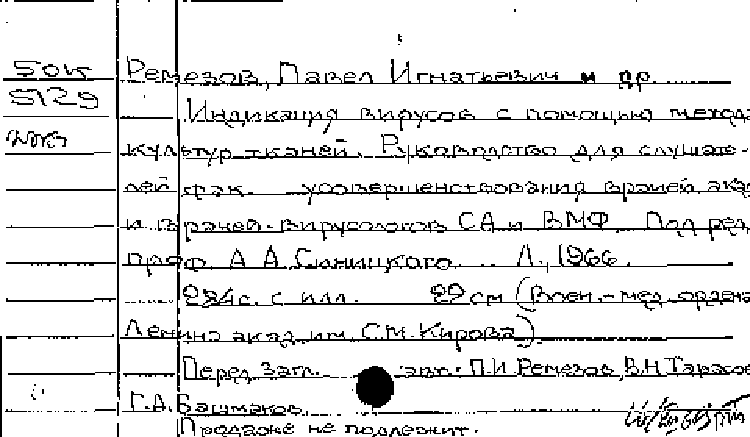 50к Ремезов, Павел Игнатьевич и др.
5129 Индикация вирусов с помощью метода
культур тканей. Руководство для слушате-
лей фак. усовершенствования врачей акад
и врачей-вирусологов СА и ВМФ. Под ред.
проф. А. А. Синицкого. Л., 1966.
284 с. с илл. 29 см (Воен.-мед. ордена
Ленина акад. им. С.М. Кирова)
Перед загл. авт.: П.И. Ремезов, В.Н. Тарасов
Г.А. Башмаков
Продаже не подлежит.